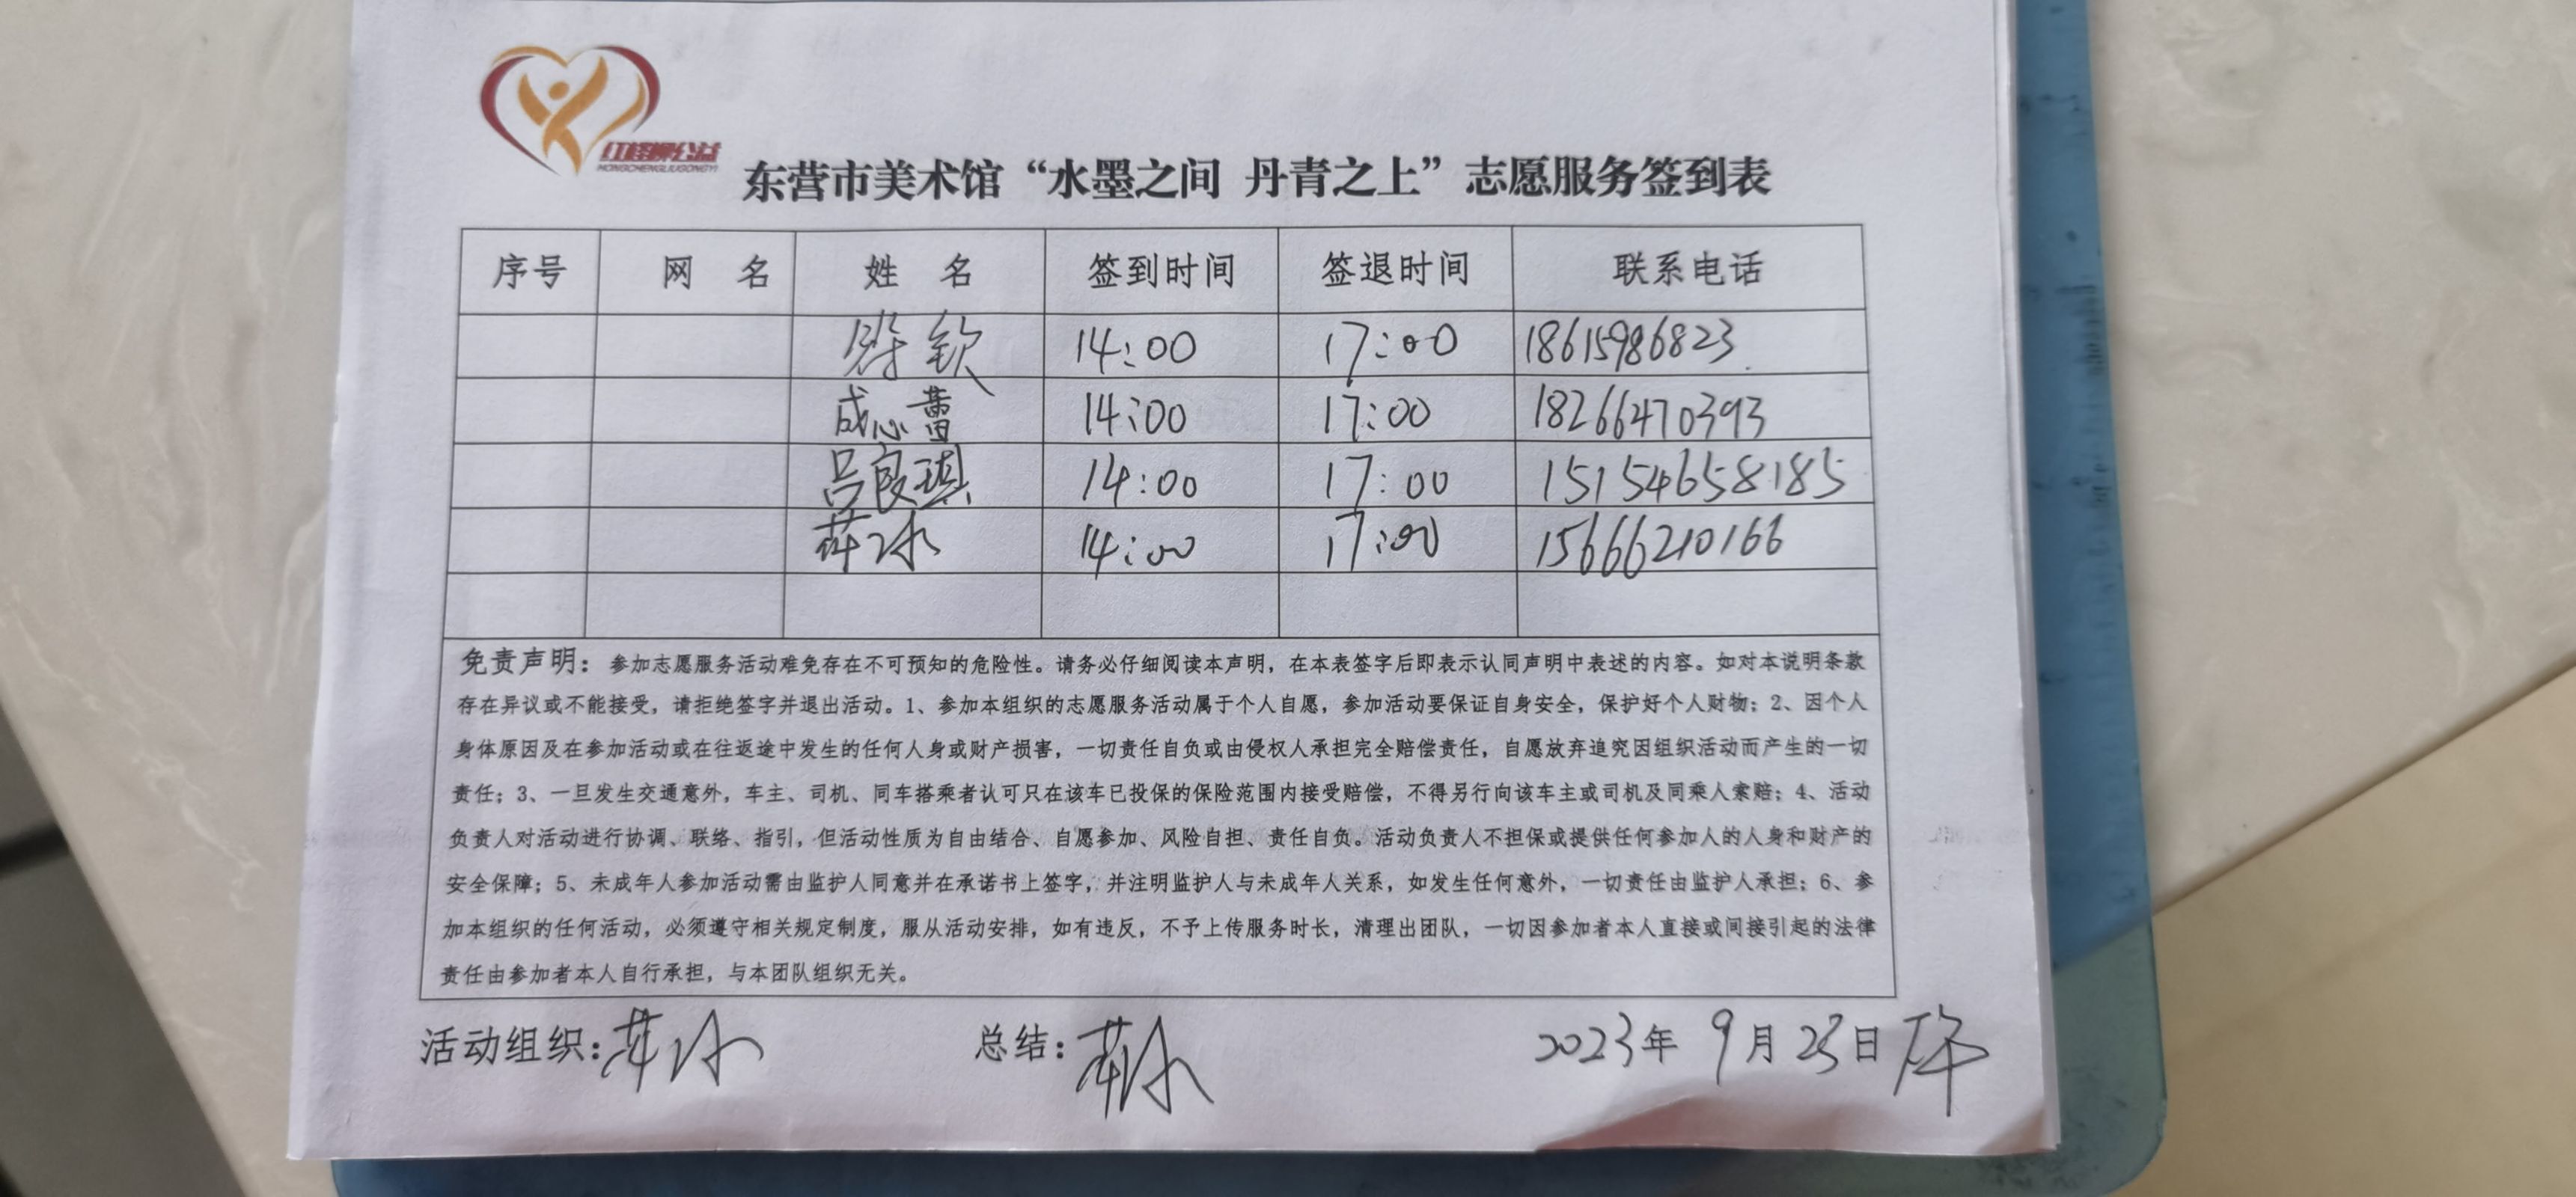 红柽柳公益
HONGCHENGLIUGONGYI
东营市美术馆“水墨之间 丹青之上”志愿服务签到表
序号 网 名 姓 名 签到时间 签退时间 联系电话
钦 14:00 17:00 18615986823
成心蕾 14:00 17:00 18266470393
吕良琪 14:00 17:00 151546658185
冰 14:00 17:00 15666210166
免责声明：参加志愿服务活动难免存在不可预知的危险性。请务必仔细阅读本声明，在本表签字后即表示认同声明中表述的内容。如对本说明条款
存在异议或不能接受，请拒绝签字并退出活动。1、参加本组织的志愿服务活动属于个人自愿，参加活动要保证自身安全，保护好个人财物；2、因个人
身体原因及在参加活动或在往返途中发生的任何人身或财产损害，一切责任自负或由侵权人承担完全赔偿责任，自愿放弃追究因组织活动而产生的一切
责任；3、一旦发生交通意外，车主、司机、同车搭乘者认可只在该车已投保的保险范围内接受赔偿，不得另行向该车主或司机及同乘人索赔；4、活动
负责人对活动进行协调、联络、指引，但活动性质为自由结合、自愿参加、风险自担、责任自负。活动负责人不担保或提供任何参加人的人身和财产的
安全保障；5、未成年人参加活动需由监护人同意并在承诺书上签字，并注明监护人与未成年人关系，如发生任何意外，一切责任由监护人承担；6、参
加本组织的任何活动，必须遵守相关规定制度，服从活动安排，如有违反，不予上传服务时长，清理出团队，一切因参加者本人直接或间接引起的法律
责任由参加者本人自行承担，与本团队组织无关。
活动组织： 冰 总结： 冰 2023年 9月 23日 下午